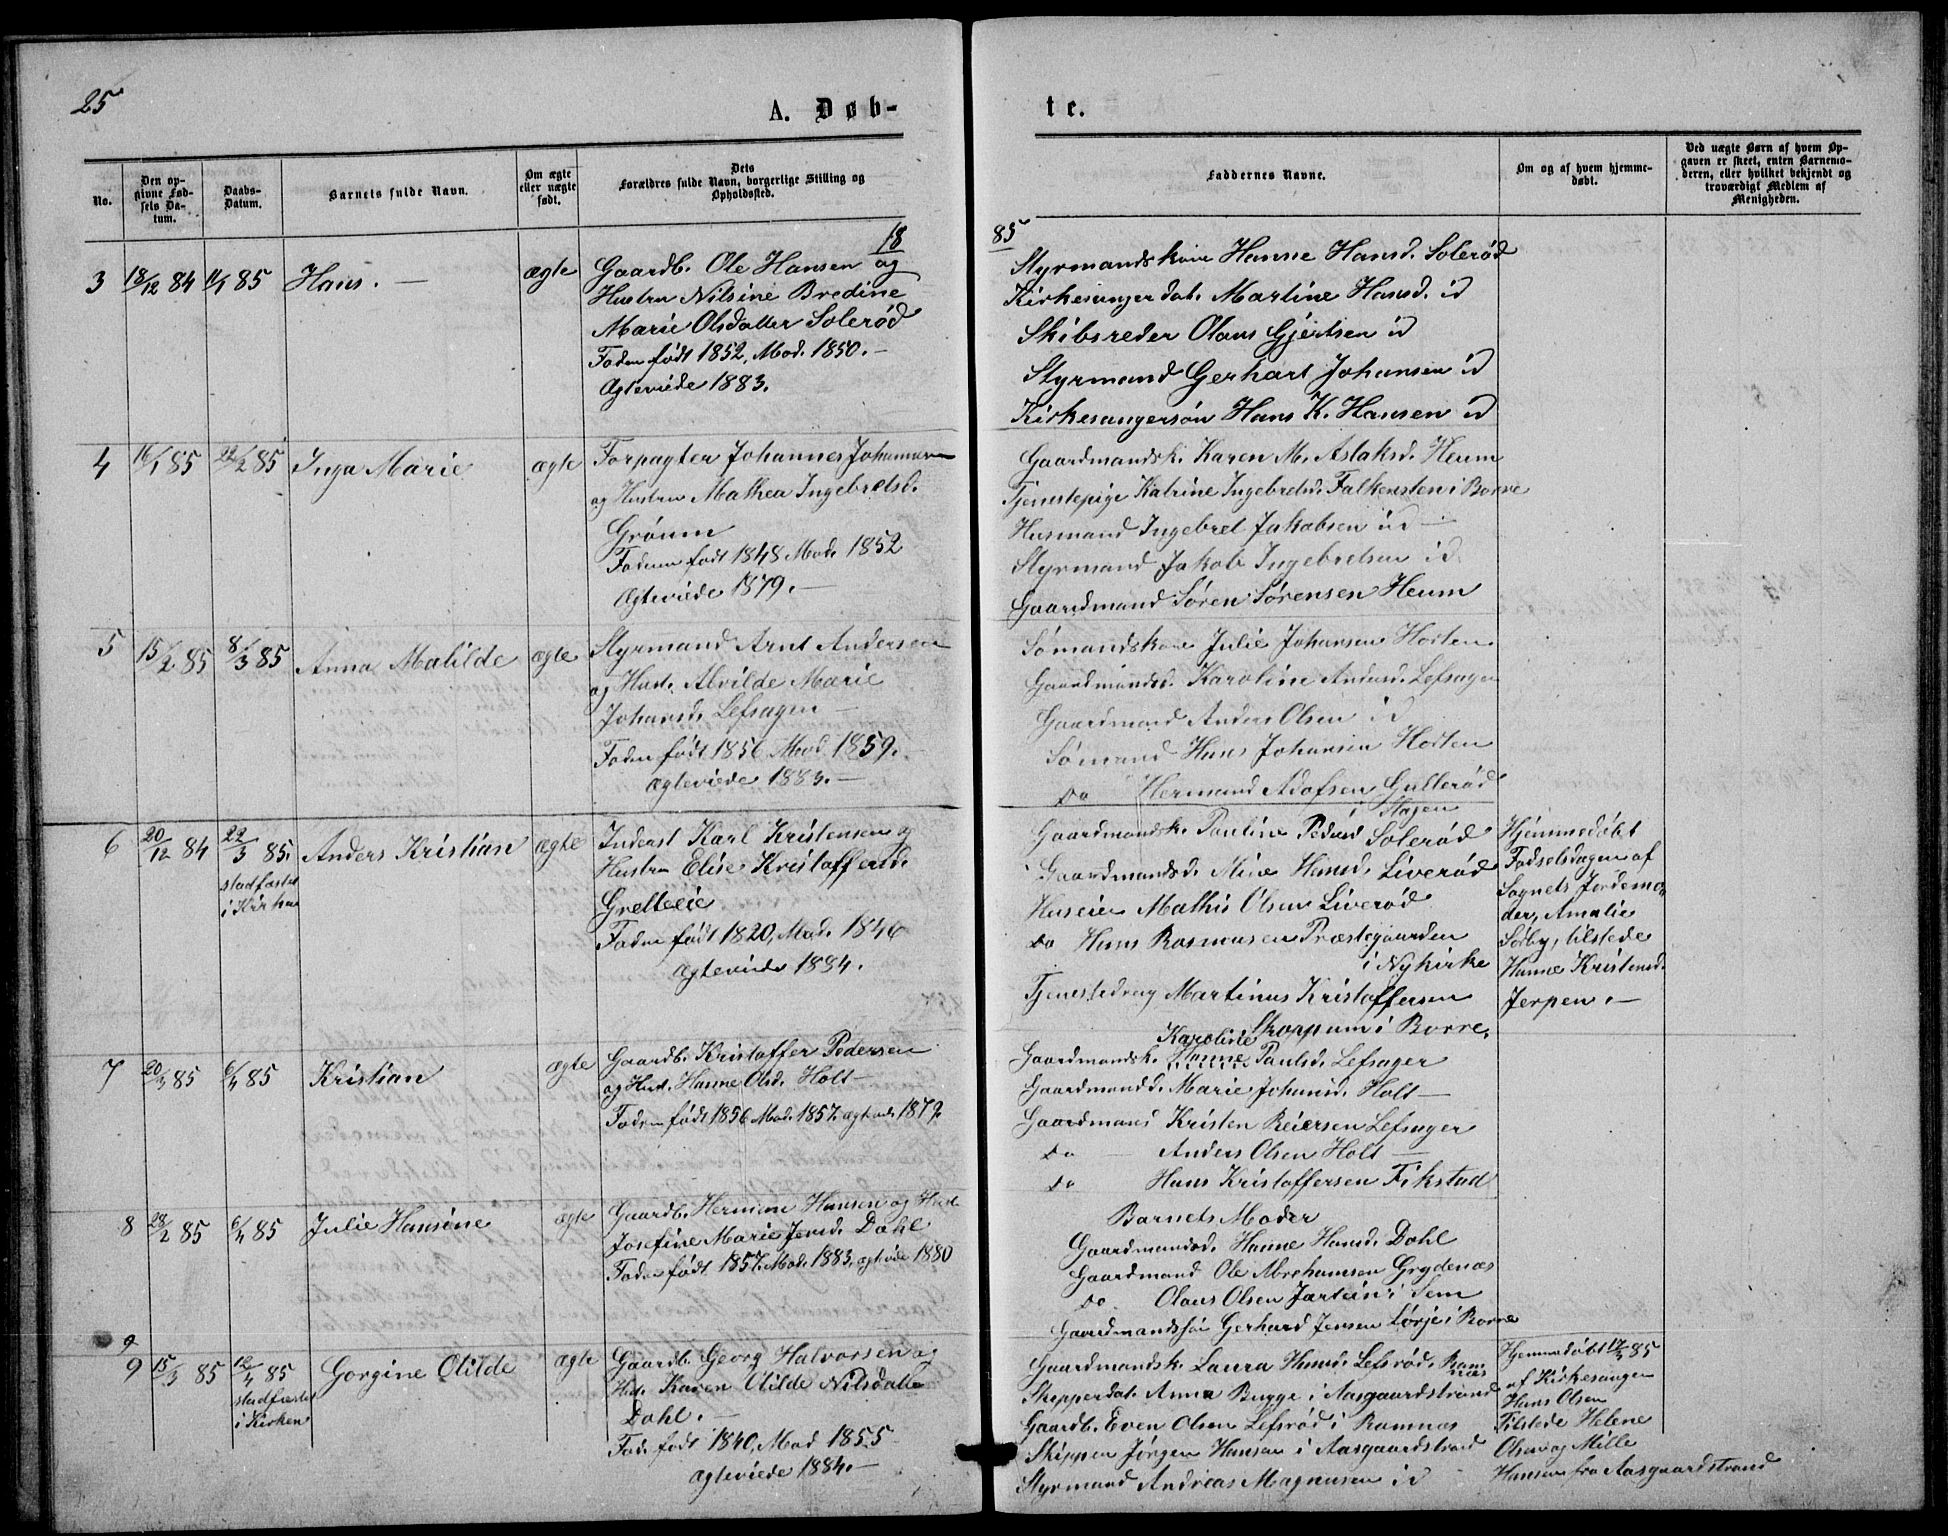 25
A. Døb-
te.
No.
Den op-
givne Fød-
sels Da-
tum.
Daabs-
Datum.
Barnets fulde Navn.
Om ægte
eller uægte
født.
Dets
Forældres fulde Navn, borgerlige Stilling og
Opholdssted.
Faddernes Navne.
Om og af hvem hjemme-
døbt.
Ved uægte Børn af hvem Op-
gaven er skeet, enten Barnemo-
deren, eller hvilket bekjendt og
troværdigt Medlem af
Menigheden.
18
85
3 18/12 84 11/1 85 Hans. — ægte
Gaardb. Ole Hansen og
Hustru Nilsine Bredine
Marie Olsdatter Solerød
Faderen født 1852, Mod. 1850. —
Ægteviede 1883.
Styrmandskone Hanne Hansd. Solerød
Kirkesangerdat. Martine Hansd. id
Skibsreder Olaus Gjertsen id
Styrmand Gerhart Johansen id
Kirkesangersøn Hans K. Hansen id
4 16/1 85 22/2 85 Inga Marie ægte
Forpagter Johannes Johannesen
og Hustru Mathea Ingebretsd.
Grønm
Faderen født 1848 Mod. 1852
Ægteviede 1879. —
Gaardmandsk. Karen M. Aslaksd. Heum
Tjenestepige Katrine Ingebretsd. Falkensten i Borre
Husmand Ingebret Jakobsen id —
Styrmand Jakob Ingebretsen id
Gaardmand Søren Sørensen Heum
5 15/2 85 8/3 85 Anna Matilde ægte
Styrmand Arnt Andersen
og Hust. Alvilde Marie
Johansd. Lefsager —
Faderen født 1856 Mod. 1859. —
Ægteviede 1883. —
Sømandskone Julie Johansen Horten
Gaardmandsd. Karoline Andersd. Lefsager
Gaardmand Anders Olsen id
Sømand Hans Johansen Horten
Do Hermand Adofsen Gullerød
i Slagen
6 20/12 84 22/3 85. Anders Kristian ægte
stadfæstet
i Kirken
Inderst Karl Kristensen og
Hustru Elise Kristoffersd.
Grelleie
Faderen født 1820, Mod. 1846
Ægteviede 1884.
Gaardmandsk. Pauline Pedersd Solerød
Gaardmandsd. Mine Hansd. Liverød
Huseier Mathis Olsen Liverød
Do Hans Rasmusen Præstegaarden
i Nykirke
Tjenestedreng Martinus Kristoffersen
Skoppum i Borre.
Hjemmedøbt
Fødselsdagen af
Sognets Jordemo-
der, Amalie
Sørby, tilstede
Hanne Kristensd.
Jerpen. —
7 20/3 85 6/4 85 Kristian ægte
Gaardb. Kristoffer Pedersen
og Hust. Hanne Olsd. Holt —
Faderen født 1856 Mod. 1857. ægtevde 1879.
Karoline
Gaardmandsk. Hanne Paulsd. Lefsager
Gaardmandsd. Marie Johansd. Holt —
Gaardmand Kristen Reiersen Lefsager
Do — Anders Olsen Holt —
Do Hans Kristoffersen Fikstad
8 28/2 85 6/4 85 Julie Hansine ægte
Gaardb. Herman Hansen og Hust.
Josefine Marie Jensd. Dahl
Faderen født 1857. Mod. 1883, ægtevde 1880
Barnets Moder
Gaardmandsd. Hanne Hansd. Dahl
Gaardmand Ole Abrahamsen Grydenæs
Do. Olaus Olsen Jartein i Sem
Gaardmandssøn Gerhard Jensen Lørje i Borre
9
9 15/3 85 12/4 85 Gorgine Otilde ægte
stadfæstet
i Kirken
Gaardb. Georg Halvorsen og
Hust. Karen Otilde Nilsdatter
Dahl. —
Fad. født 1840, Mod 1855
Ægteviede 1884. —
Gaardmandsk. Laura Hansd. Lefsrød. Ram-
næs
Skipperdat. Anna Bugge i Aasgaardstrand
Gaardb. Even Olsen Lefsrød i Ramnæs
Skipper Jørgen Hansen i Aasgaardstrand
Styrmand Andreas Magnusen id
Hjemmedøbt 17/3 85
af Kirkesanger
Hans Olsen
Tilstede Helene
Olsen og Mille
Hansen fra Aasgaardstrand